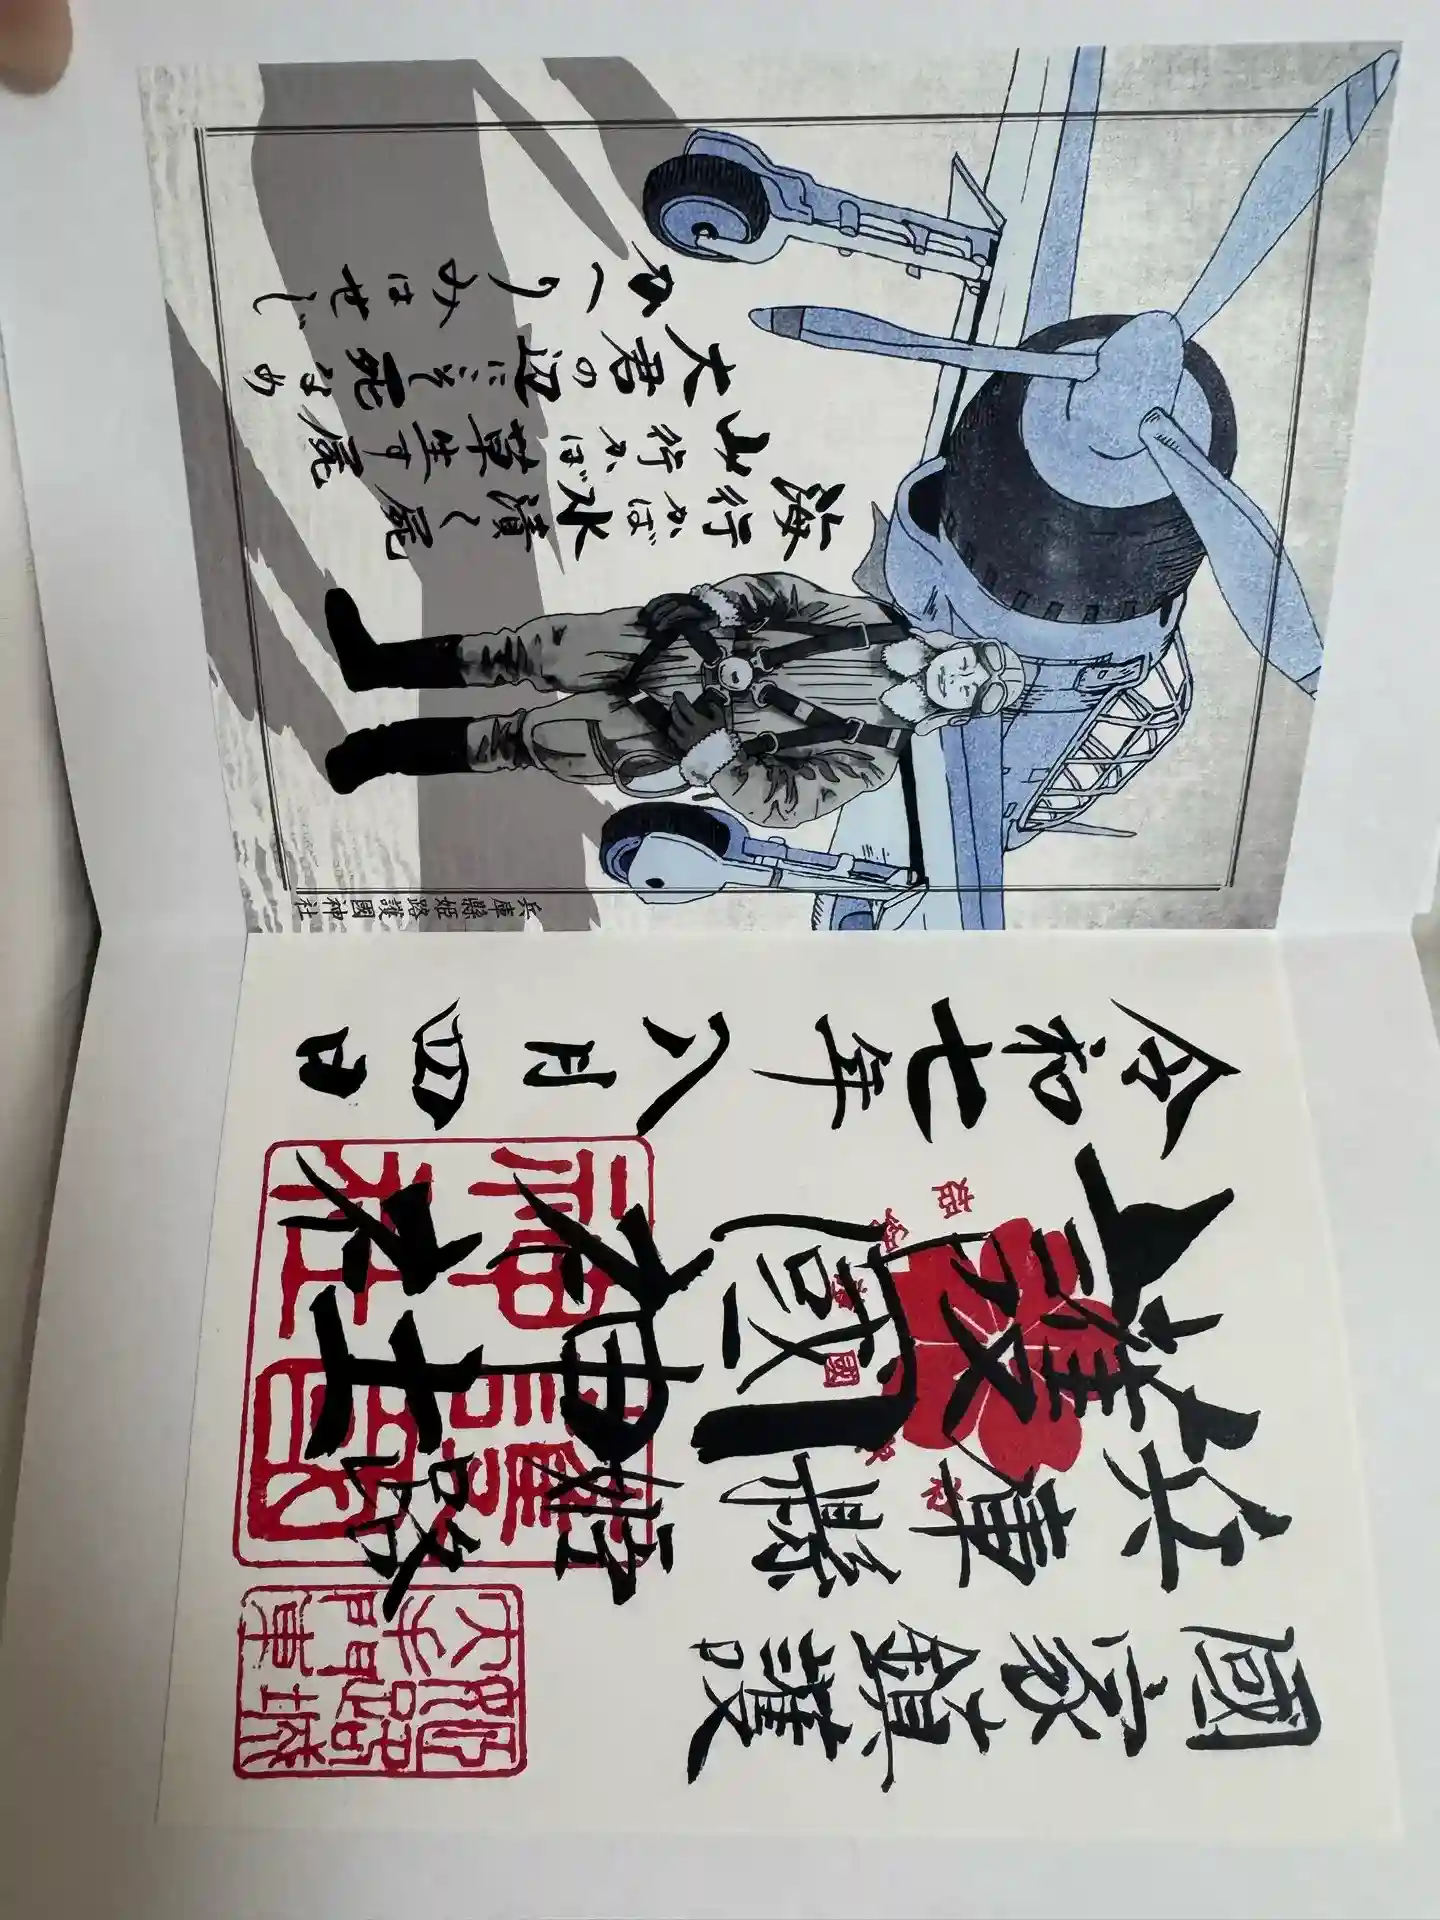 國家鎮護
兵庫縣姫路
護國神社
令和七年八月四日
護國神社
姫路城
大手門東
海行かば水漬く屍
山行かば草生す屍
大君の辺にこそ死なめ
かへりみはせじ
兵庫縣姫路護國神社